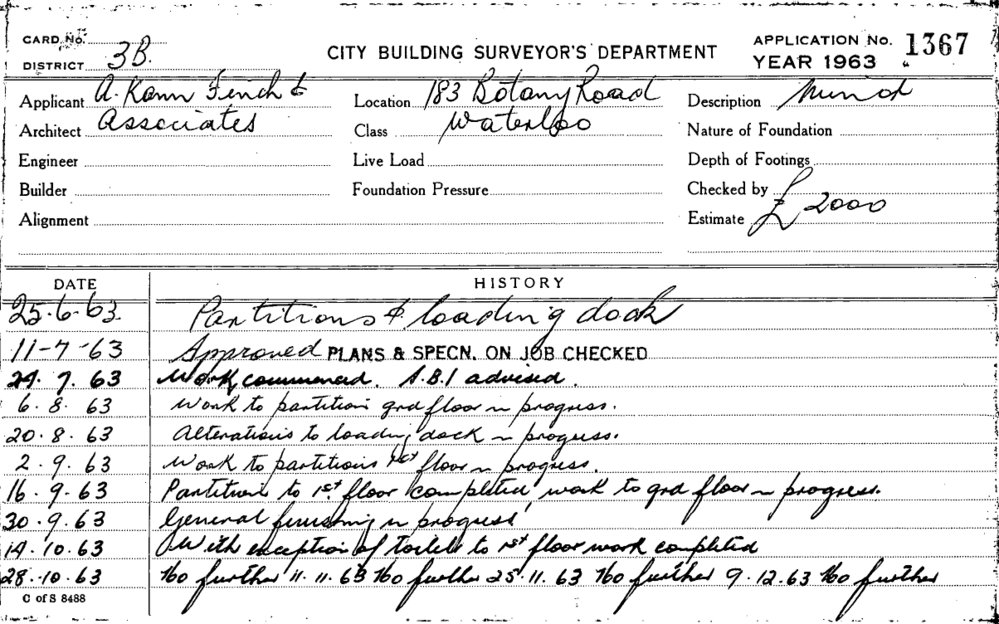 CARD No.
DISTRICT 3B.
CITY BUILDING SURVEYOR'S DEPARTMENT
APPLICATION No. 1367
YEAR 1963
Applicant A. Kann Finch &
Architect Associates
Engineer
Builder
Alignment
Location 183 Botany Road
Class Waterloo
Live Load
Foundation Pressure
Description
Nature of Foundation
Depth of Footings
Checked by
Estimate £2000
DATE HISTORY
25.6.63. Partitions & loading dock
11-7-63 Approved PLANS & SPECN. ON JOB CHECKED
29.7.63 Work commenced. S.B.I advised.
6.8.63 Work to partition grd floor in progress.
20.8.63 Alterations to loading dock in progress.
2.9.63 Work to partitions 1st floor in progress.
16.9.63 Partitions to 1st floor completed, work to grd floor in progress.
30.9.63 General finishing in progress
14.10.63 With exception of toilets to 1st floor work completed
28.10.63 No further 11.11.63 No further 25.11.63 No further 9.12.63 No further
C of S 8488